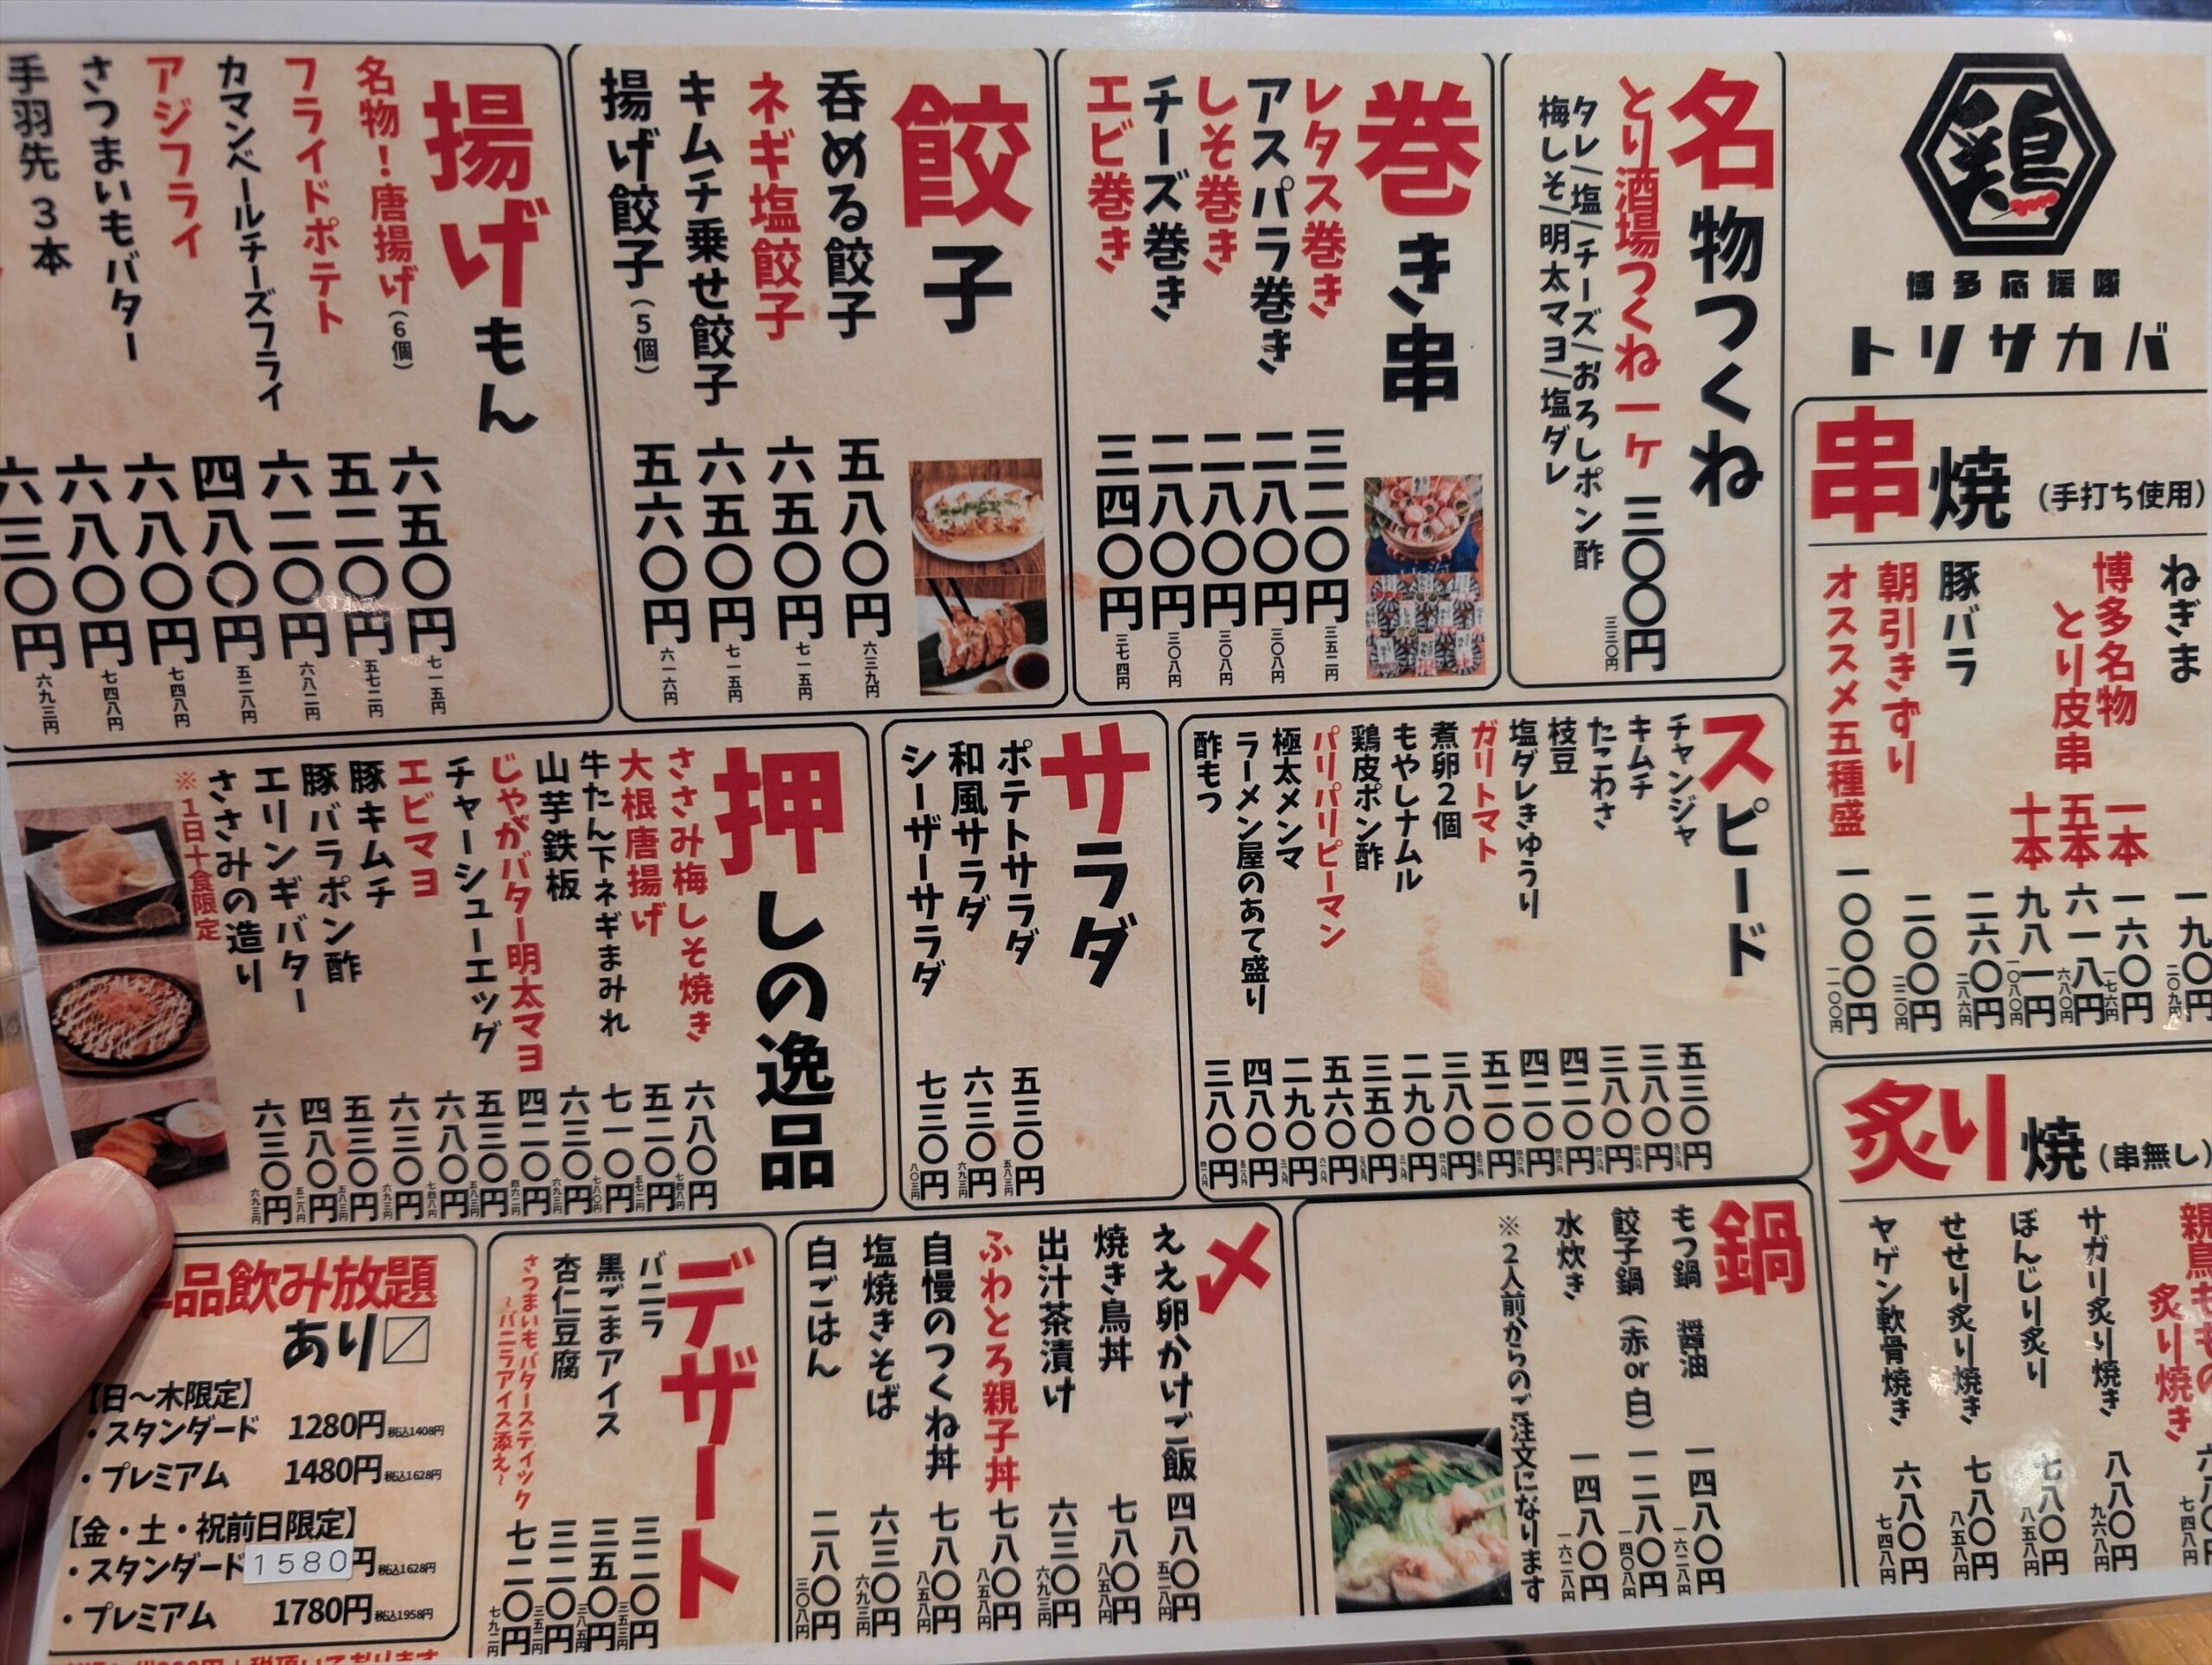 鶏
博多応援隊
トリサカバ
串焼（手打ち使用）
ねぎま 一九〇円 二〇九円
博多名物
とり皮串
一本 一六〇円 一七六円
五本 六一八円 六八〇円
十本 九八一円 一〇八〇円
豚バラ 二六〇円 二八六円
朝引きずり 二〇〇円 二二〇円
オススメ五種盛 一〇〇〇円 一一〇〇円
炙り焼（串無し）
親鳥ももの
炙り焼き 七四八円
サガリ炙り焼き 八八〇円 九六八円
ぼんじり炙り 七八〇円 八五八円
せせり炙り焼き 七八〇円 八五八円
ヤゲン軟骨焼き 六八〇円 七四八円
名物つくね
とり酒場つくね一ヶ 三〇〇円 三三〇円
タレ/塩/チーズ/おろしポン酢
梅しそ/明太マヨ/塩ダレ
巻き串
レタス巻き 三二〇円 三五二円
アスパラ巻き 二八〇円 三〇八円
しそ巻き 二八〇円 三〇八円
チーズ巻き 二八〇円 三〇八円
エビ巻き 三四〇円 三七四円
餃子
呑める餃子 五八〇円 六三九円
ネギ塩餃子 六五〇円 七一五円
キムチ乗せ餃子 六五〇円 七一五円
揚げ餃子（5個） 五六〇円 六一六円
揚げもん
名物！唐揚げ（6個） 六五〇円 七一五円
フライドポテト 五二〇円 五七二円
カマンベールチーズフライ 六二〇円 六八二円
アジフライ 四八〇円 五二八円
さつまいもバター 六八〇円 七四八円
手羽先3本 六八〇円 七四八円
六三〇円 六九三円
スピード
チャンジャ 五三〇円
キムチ 三八〇円
たこわさ 三八〇円
枝豆 四二〇円
塩ダレきゅうり 四二〇円
ガリトマト 五二〇円
煮卵2個 三八〇円
もやしナムル 二九〇円
鶏皮ポン酢 三五〇円
パリパリピーマン 五六〇円
極太メンマ 二九〇円
ラーメン屋のあて盛り 四八〇円
酢もつ 三八〇円
サラダ
ポテトサラダ 五三〇円 五八三円
和風サラダ 六三〇円 六九三円
シーザーサラダ 七三〇円 八〇三円
押しの逸品
ささみ梅しそ焼き 六八〇円 七四八円
大根唐揚げ 五二〇円 五七二円
牛たん下ネギまみれ 七一〇円 七八〇円
山芋鉄板 六三〇円 六九三円
じゃがバター明太マヨ 四二〇円 四六二円
チャーシューエッグ 五三〇円 五八三円
エビマヨ 六八〇円 七四八円
豚キムチ 六三〇円 六九三円
豚バラポン酢 五三〇円 五八三円
エリンギバター 四八〇円 五二八円
ささみの造り 六三〇円 六九三円
※1日十食限定
鍋
もつ鍋 醤油 一四八〇円 一六二八円
餃子鍋（赤or白） 一二八〇円 一四〇八円
水炊き 一四八〇円 一六二八円
※2人前からのご注文になります
〆
ええ卵かけご飯 四八〇円 五二八円
焼き鳥丼 七八〇円 八五八円
出汁茶漬け 六三〇円 六九三円
ふわとろ親子丼 七八〇円 八五八円
自慢のつくね丼 七八〇円 八五八円
塩焼きそば 六三〇円 六九三円
白ごはん 二八〇円 三〇八円
デザート
バニラ 三二〇円 三五二円
黒ごまアイス 三五〇円 三八五円
杏仁豆腐 三二〇円 三五二円
さつまいもバタースティック
～バニラアイス添え～ 七二〇円 七九二円
品飲み放題
あり〼
【日～木限定】
・スタンダード 1280円 税込1408円
・プレミアム 1480円 税込1628円
【金・土・祝前日限定】
・スタンダード 1580円 税込1628円
・プレミアム 1780円 税込1958円